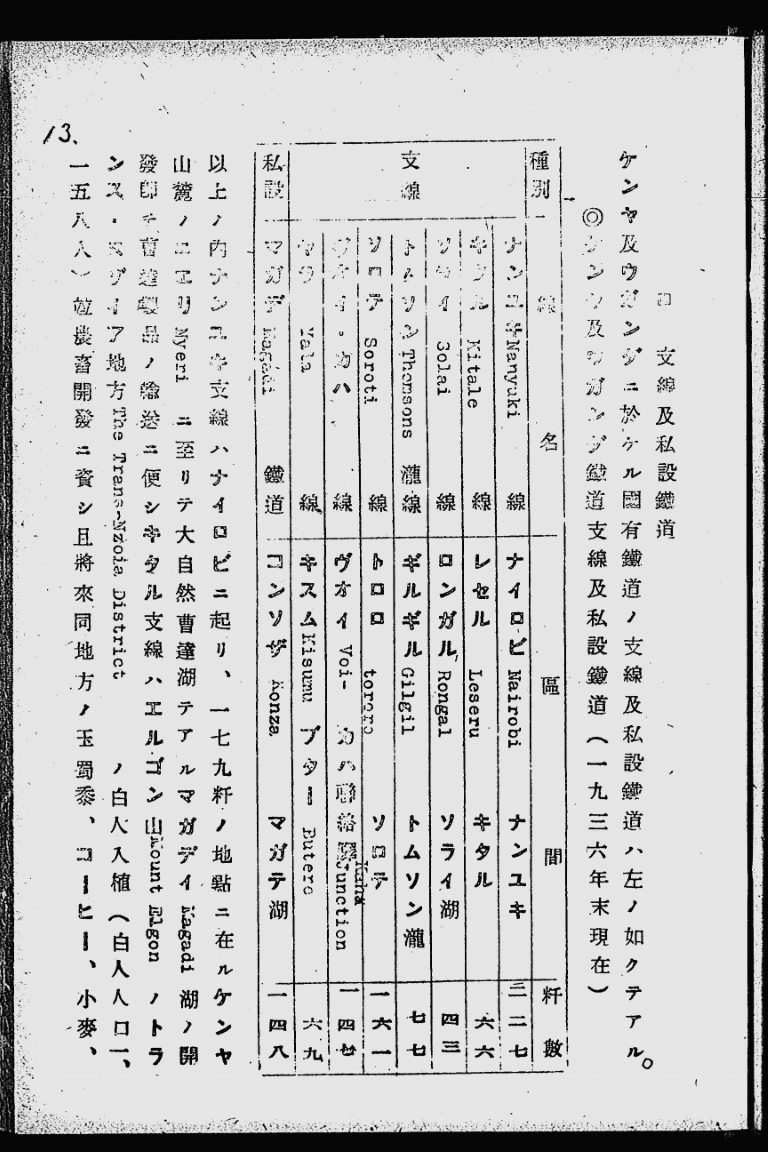 ロ 支線及私設鐵道
ケンヤ及ウガンダニ於ケル國有鐵道ノ支線及私設鐵道ハ左ノ如クデアル。
◎ケンヤ及ウガンダ鐵道支線及私設鐵道(一九三六年末現在)
種別 線名 區間 粁數
支線 ナンユキ Nanyuki 線 ナイロビ Nairobi ナンユキ 二二七
キタル Kitale 線 レセル Leseru キタル 六六
ソライ Solai 線 ロンガル Rongal ソライ湖 四三
トムソン Thomsons 瀧線 ギルギル Gilgil トムソン瀧 七七
ソロテ Soroti 線 トロロ tororo ソロテ 一六一
ヴオイ・カハ 線 ヴオイ Voi- カハ聯絡驛 Kaha Junction 一四七
ヤラ Yala 線 キスム Kisumu ブター Butere 六九
私設 マガデ Magadi 鐵道 コンソザ Konza マガテ湖 一四八
以上ノ内ナンユキ支線ハナイロビニ起リ、一七九粁ノ地點ニ在ルケンヤ
山麓ノニエリ Nyeri ニ至リテ大自然曹達湖テアルマガデイ Magadi 湖ノ開
發卽チ曹達製品ノ輸送ニ便シキタル支線ハエルゴン山 Mount Elgon ノトラ
ンス・ヌゾイア地方 The Trans-Nzoia District ノ白人入植(白人人口一、
一五八人)竝農畜開發ニ資シ且將來同地方ノ玉蜀黍、コーヒー、小麥、
13.